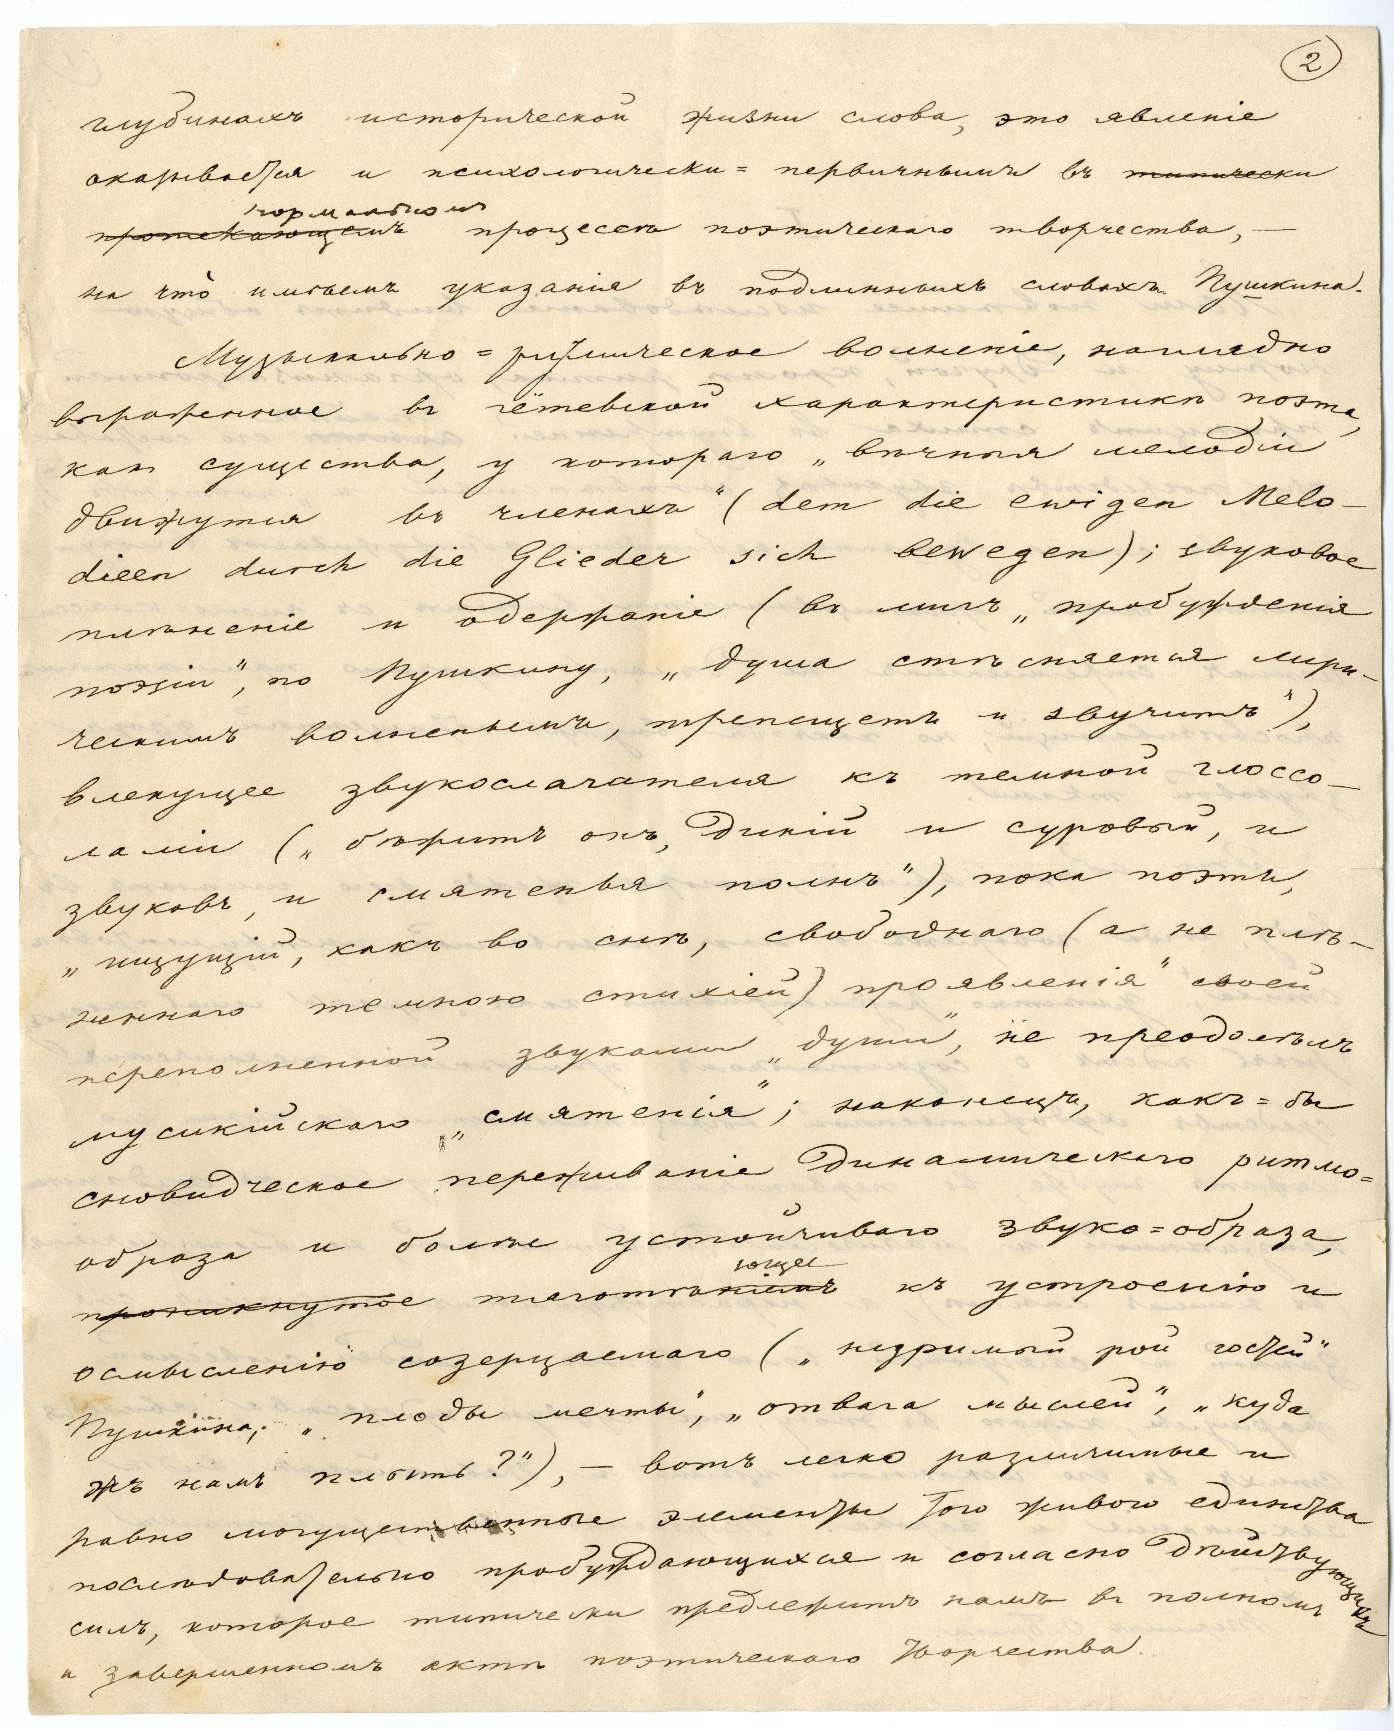 2
глубинахъ исторической жизни слова, это явленіе
оказывается и психологически = первичнымъ въ типически
нормальномъ
протекающемъ процессѣ поэтическаго творчества, —
на что̀ имѣемъ указанія въ подлинныхъ словахъ Пушкина.
Музыкально = ритмическое волненіе, наглядно
выраженное въ гётевской характеристикѣ поэта,
какъ существа, у котораго „вѣчныя мелодіи
движутся въ членахъ" (dem die ewigen Melo-
dieen durch die Glieder sich bewegen); звуковое
плѣненіе и одержаніе (въ мигъ „пробужденія
поэзіи", по Пушкину, „душа стѣсняется лири-
ческимъ волненьемъ, трепещетъ и звучитъ"),
влекущее звукослагателя къ темной глоссо-
лаліи („бѣжитъ онъ, дикій и суровый, и
звуковъ, и смятенья полнъ"), пока поэтъ,
„ищущій, какъ во снѣ, свободнаго (а не плѣ-
неннаго темною стихіей) проявленія" своей
переполненной звуками „души", не преодолѣлъ
мусикійскаго „смятенія"; наконецъ, какъ = бы
сновидческое переживаніе динамическаго ритмо =
образа и болѣе устойчиваго звуко = образа,
ющее
проникнутое тяготѣніемъ къ устроенію и
осмысленію созерцаемаго („незримый рой гостей"
Пушкина; „плоды мечты", „отвага мыслей", „куда
жъ намъ плыть?"), — вотъ легко различимые и
равно могущественные элементы того живого единства
послѣдовательно пробуждающихся и согласно дѣйствующихъ
силъ, которое типически предлежитъ намъ въ полномъ
и завершенномъ актѣ поэтическаго творчества.